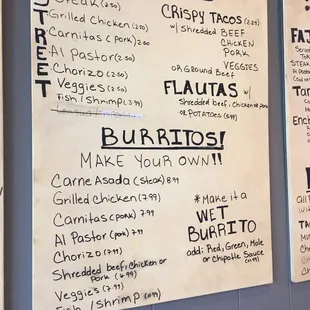 STREET
Steak (2.50)
Grilled Chicken (2.50)
Carnitas (pork) 2.50
Al Pastor (2.50)
Chorizo (2.50)
Veggies (2.50)
Fish / Shrimp (3.99)
CRISPY TACOS
w/ shredded BEEF
CHICKEN
PORK
VEGGIES
OR Ground Beef
FLAUTAS w/
Shredded beef, chicken or pork
or POTATOES
BURRITOS!
MAKE YOUR OWN!!
Carne Asada (steak) 8.99
Grilled Chicken (7.99)
Carnitas (pork) 7.99
Al Pastor (pork) 7.99
Chorizo (7.99)
Shredded beef, chicken or
pork (6.99)
Veggies (7.99)
Fish / Shrimp
*Make it a
WET
BURRITO
add: Red, Green, Mole
or Chipotle Sauce